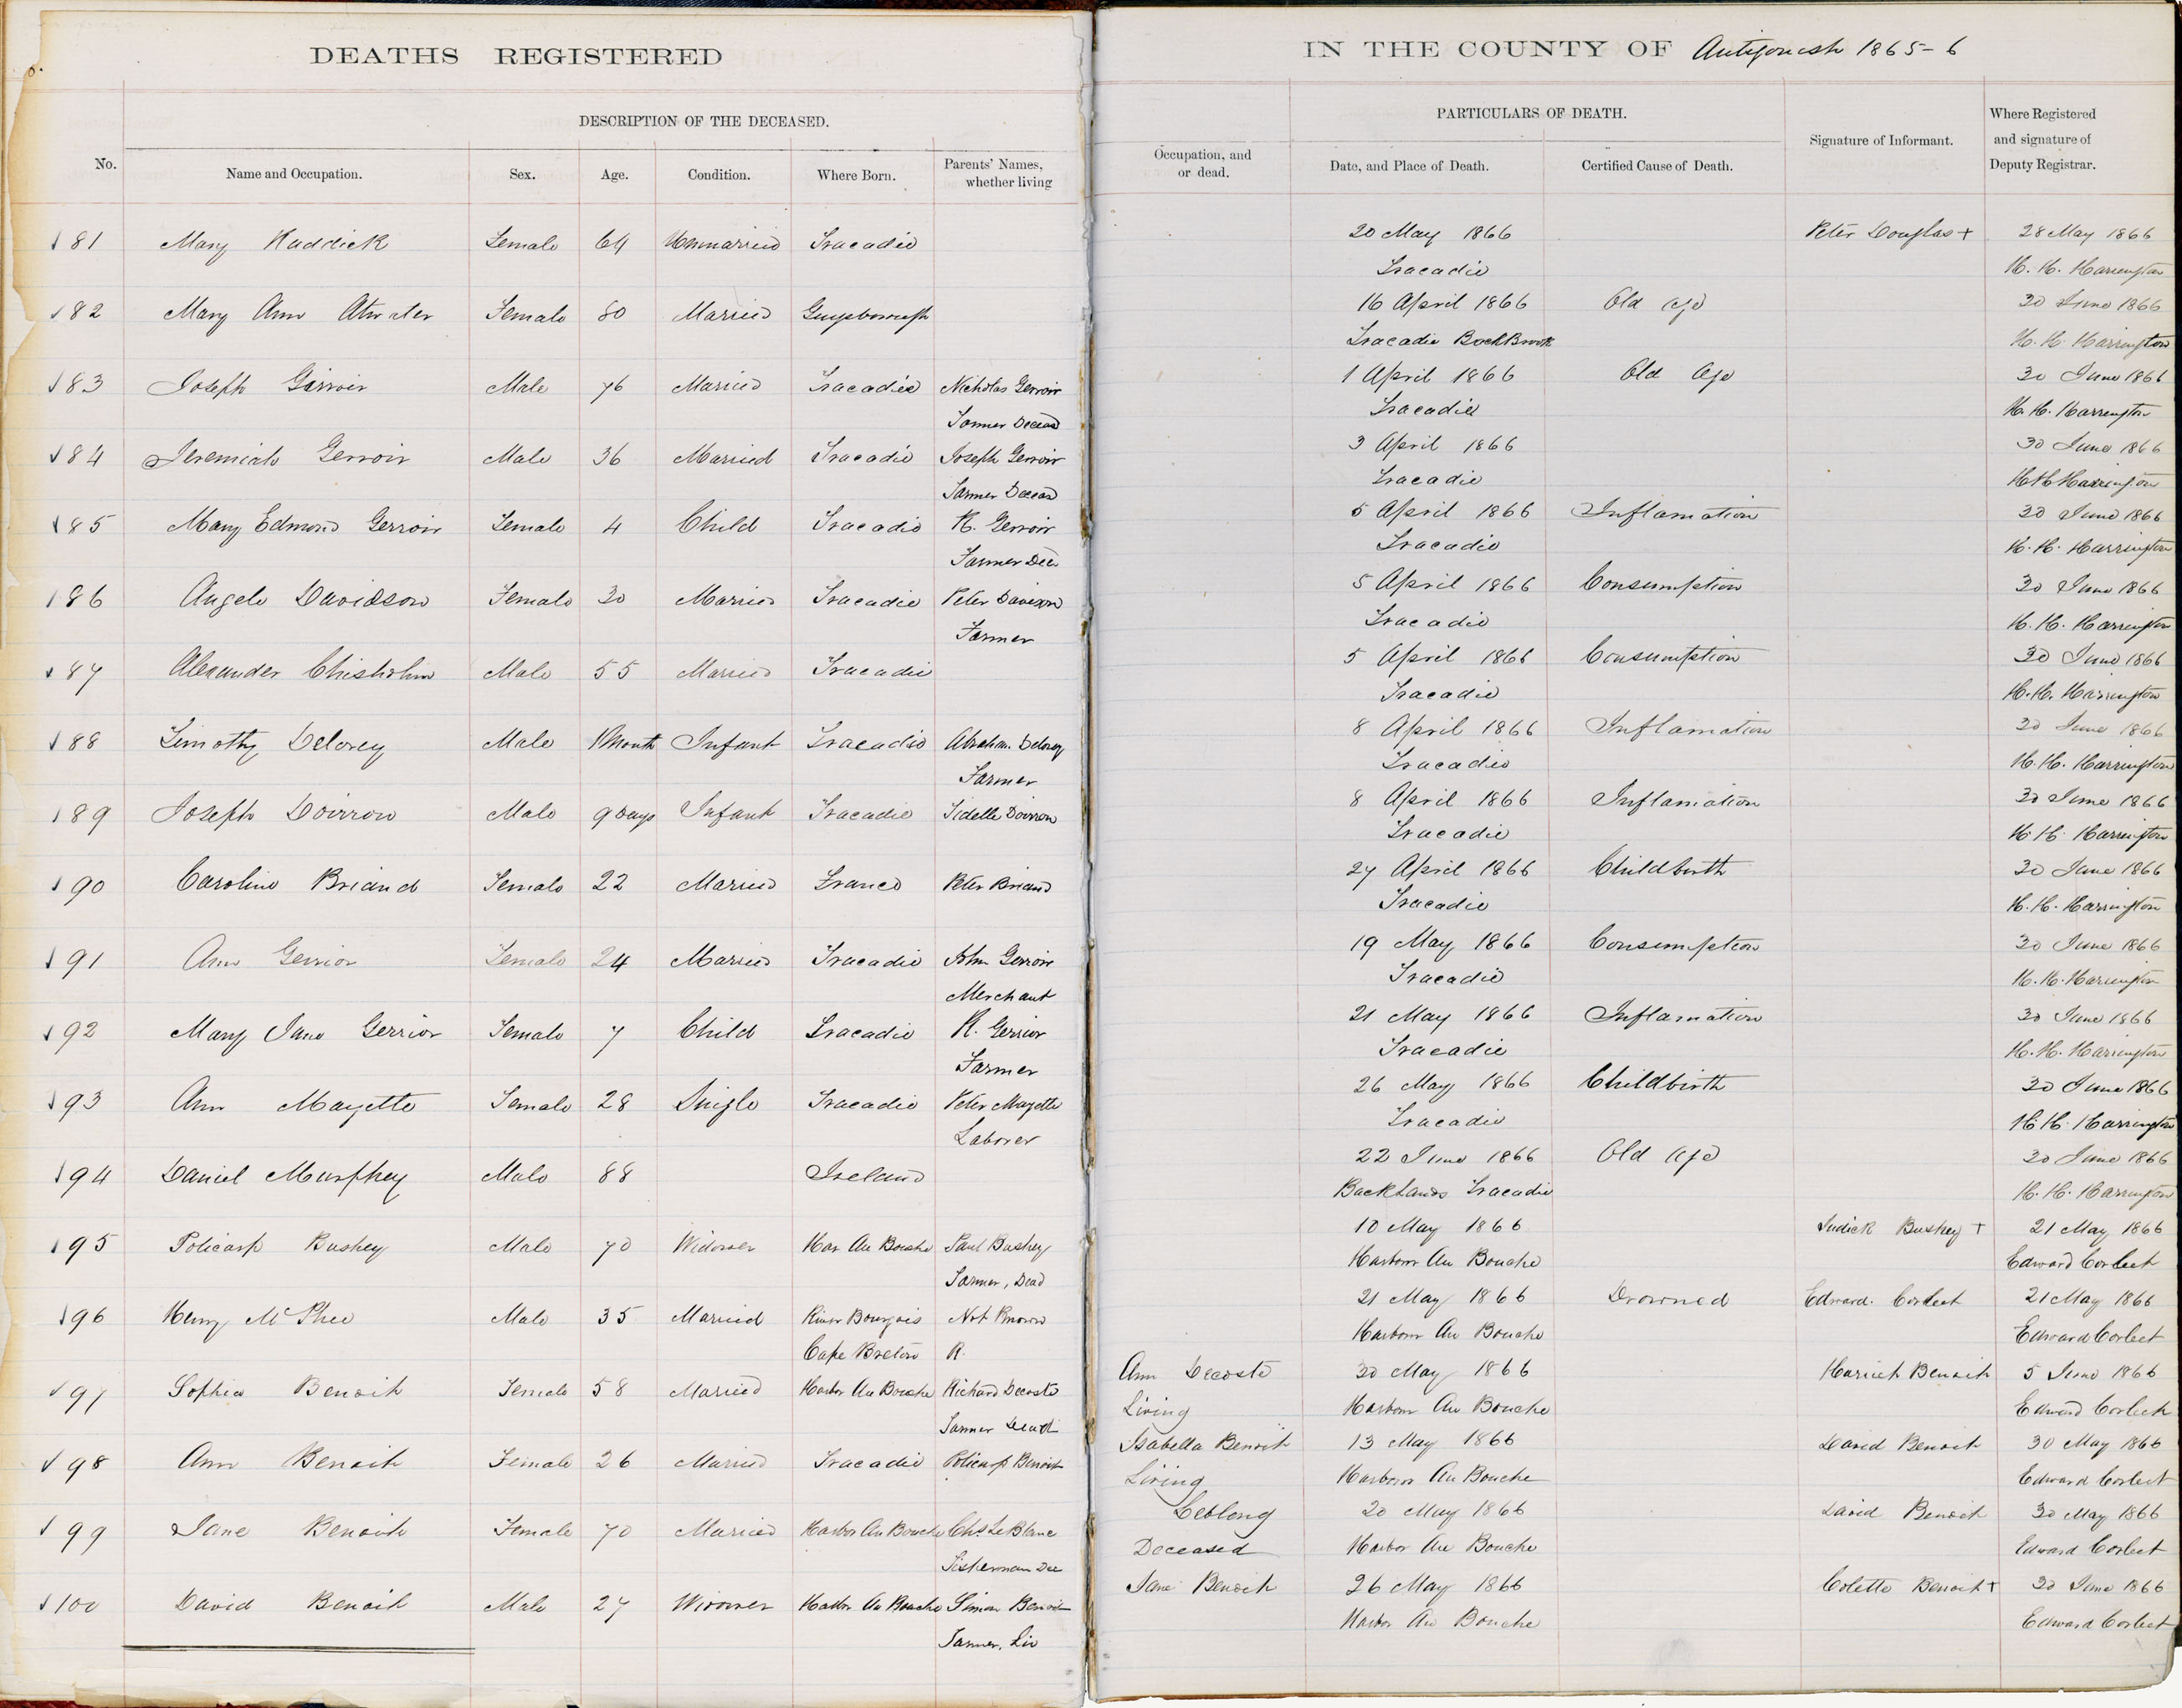 DEATHS REGISTERED IN THE COUNTY OF Antigonish 1865-6
DESCRIPTION OF THE DECEASED. PARTICULARS OF DEATH.
No. Name and Occupation. Sex. Age. Condition. Where Born. Parents' Names, whether living Occupation, and or dead. Date, and Place of Death. Certified Cause of Death. Signature of Informant. Where Registered and signature of Deputy Registrar.
81 Mary Female 64 Unmarried Tracadie 20 May 1866 Peter Douglas + 28 May 1866
Tracadie H. H. Harrington
82 Mary Ann Atwater Female 80 Married Guysborough 16 April 1866 Old age 30 June 1866
Tracadie Back Brook H. H. Harrington
83 Joseph Girroir Male 76 Married Tracadie Nicholas Gerroir 1 April 1866 Old Age 30 June 1866
Farmer Deceasd Tracadie H. H. Harrington
84 Jeremiah Gerroir Male 36 Married Tracadie Joseph Gerroir 3 April 1866 30 June 1866
Farmer Deceasd Tracadie H H Harrington
85 Mary Edmond Gerroir Female 4 Child Tracadie R. Gerroir 5 April 1866 Inflamation 30 June 1866
Farmer Dec Tracadie H. H. Harrington
86 Angele Davidson Female 30 Married Tracadie Peter Davison 5 April 1866 Consumption 30 June 1866
Farmer Tracadie H. H. Harrington
87 Alexander Chisholm Male 55 Married Tracadie 5 April 1866 Consumption 30 June 1866
Tracadie H. H. Harrington
88 Timothy Delorey Male 1 Month Infant Tracadie Abraham Delorey 8 April 1866 Inflamation 30 June 1866
Farmer Tracadie H. H. Harrington
89 Joseph Doirron Male 9 Days Infant Tracadie Fidelle Doirron 8 April 1866 Inflamation 30 June 1866
Tracadie H H Harrington
90 Caroline Briand Female 22 Married France Peter Briand 27 April 1866 Childbirth 30 June 1866
Tracadie H. H. Harrington
91 Ann Gerrior Female 24 Married Tracadie John Gerroir 19 May 1866 Consumption 30 June 1866
Merchant Tracadie H. H. Harrington
92 Mary Jane Gerrior Female 7 Child Tracadie R. Gerrior 21 May 1866 Inflamation 30 June 1866
Farmer Tracadie H. H. Harrington
93 Ann Mayette Female 28 Single Tracadie Peter Mayette 26 May 1866 Childbirth 30 June 1866
Laborer Tracadie H H Harrington
94 Daniel Murphey Male 88 Ireland 22 June 1866 Old Age 30 June 1866
Back Lands Tracadie H. H. Harrington
95 Policarp Bushey Male 70 Widower Har Au Bouche Paul Bushey 10 May 1866 Bushey + 21 May 1866
Farmer, Dead Harbour Au Bouche Edward Corbect
96 Henry McPhee Male 35 Married River Bourgois Not Known 21 May 1866 Drowned Edward. Corbect 21 May 1866
Cape Breton R. Harbour Au Bouche Edward Corbect
97 Sophia Benoit Female 58 Married Harbor Au Bouche Richard Decoste Ann Decoste 30 May 1866 Harriet Benoit 5 June 1866
Farmer Dead Living Harbour Au Bouche Edward Corbect
98 Ann Benoit Female 26 Married Tracadie Policarp Benoit Isabella Benoit 13 May 1866 David Benoit 30 May 1866
Living Harbour Au Bouche Edward Corbect
99 Jane Benoit Female 70 Married Harbor Au Bouche Chs LeBlanc Leblong 20 May 1866 David Benoit 30 May 1866
Fisherman Dec Deceased Harbor Au Bouche Edward Corbect
100 David Benoit Male 27 Widower Harbor Au Bouche Simon Benoit Jane Benoit 26 May 1866 Colette Benoit + 30 June 1866
Farmer, Liv Harbor Au Bouche Edward Corbect